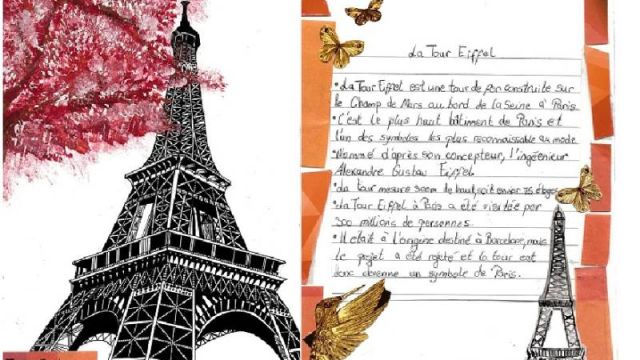 La Tour Eiffel
• La Tour Eiffel est une tour de fer construite sur
le Champ de Mars au bord de la Seine à Paris.
• C'est le plus haut bâtiment de Paris et
l'un des symboles les plus reconnaissable au mode
Nommé d'après son concepteur, l'ingénieur
Alexandre Gustav Eiffel.
• La tour mesure 300m de haut, soit environ 75 étages
• La Tour Eiffel à Paris a été visitée par
300 millions de personnes.
• Il était à l'origine destiné à Barcelone, mais
le projet a été rejeté et la tour est
donc devenue un symbole de Paris.